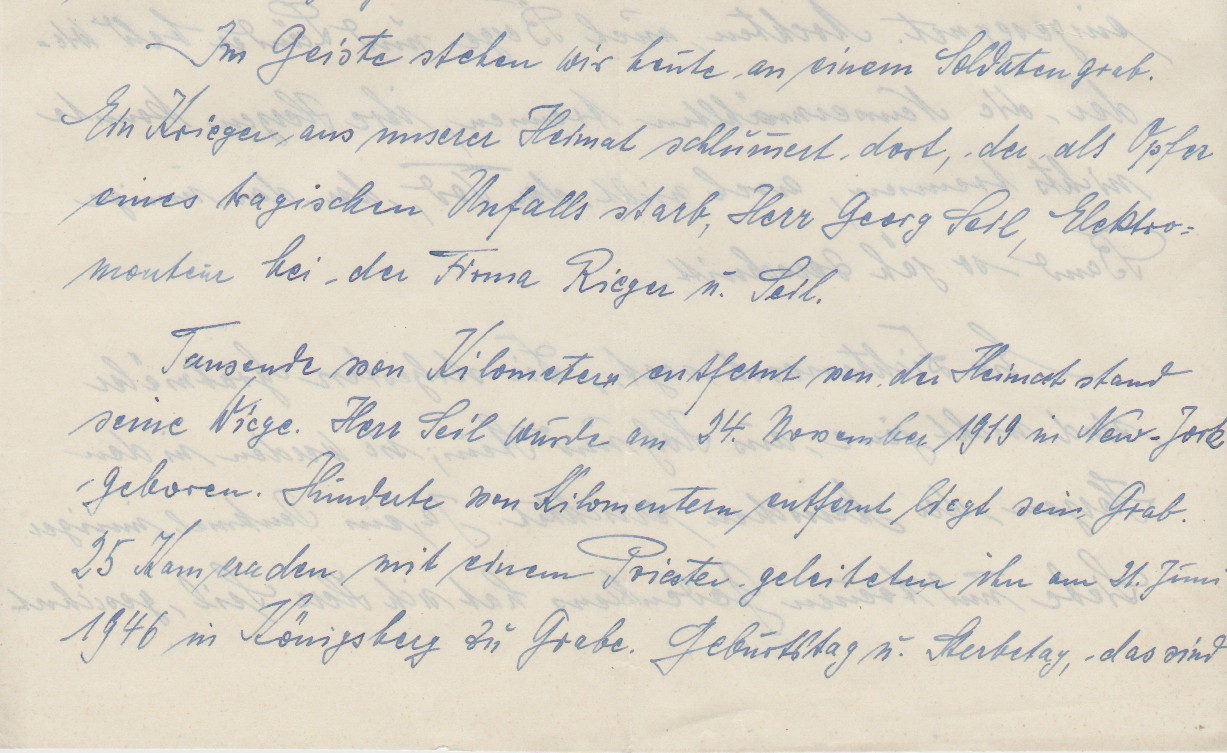 Im Geiste stehen wir heute an einem Soldatengrab.
Ein Krieger aus unserer Heimat schlummert dort, der als Opfer
eines tragischen Unfalls starb, Herr Georg Seil, Elektro=
monteur bei der Firma Rieger u. Seil.
Tausende von Kilometern entfernt von der Heimat stand
seine Wiege. Herr Seil wurde am 24. November 1919 in New-Jork
geboren. Hunderte von Kilomentern entfernt liegt sein Grab.
25 Kameraden mit einem Priester geleiteten ihn am 21. Juni
1946 in Königsberg zu Grabe. Geburtstag u. Sterbetag, das sind